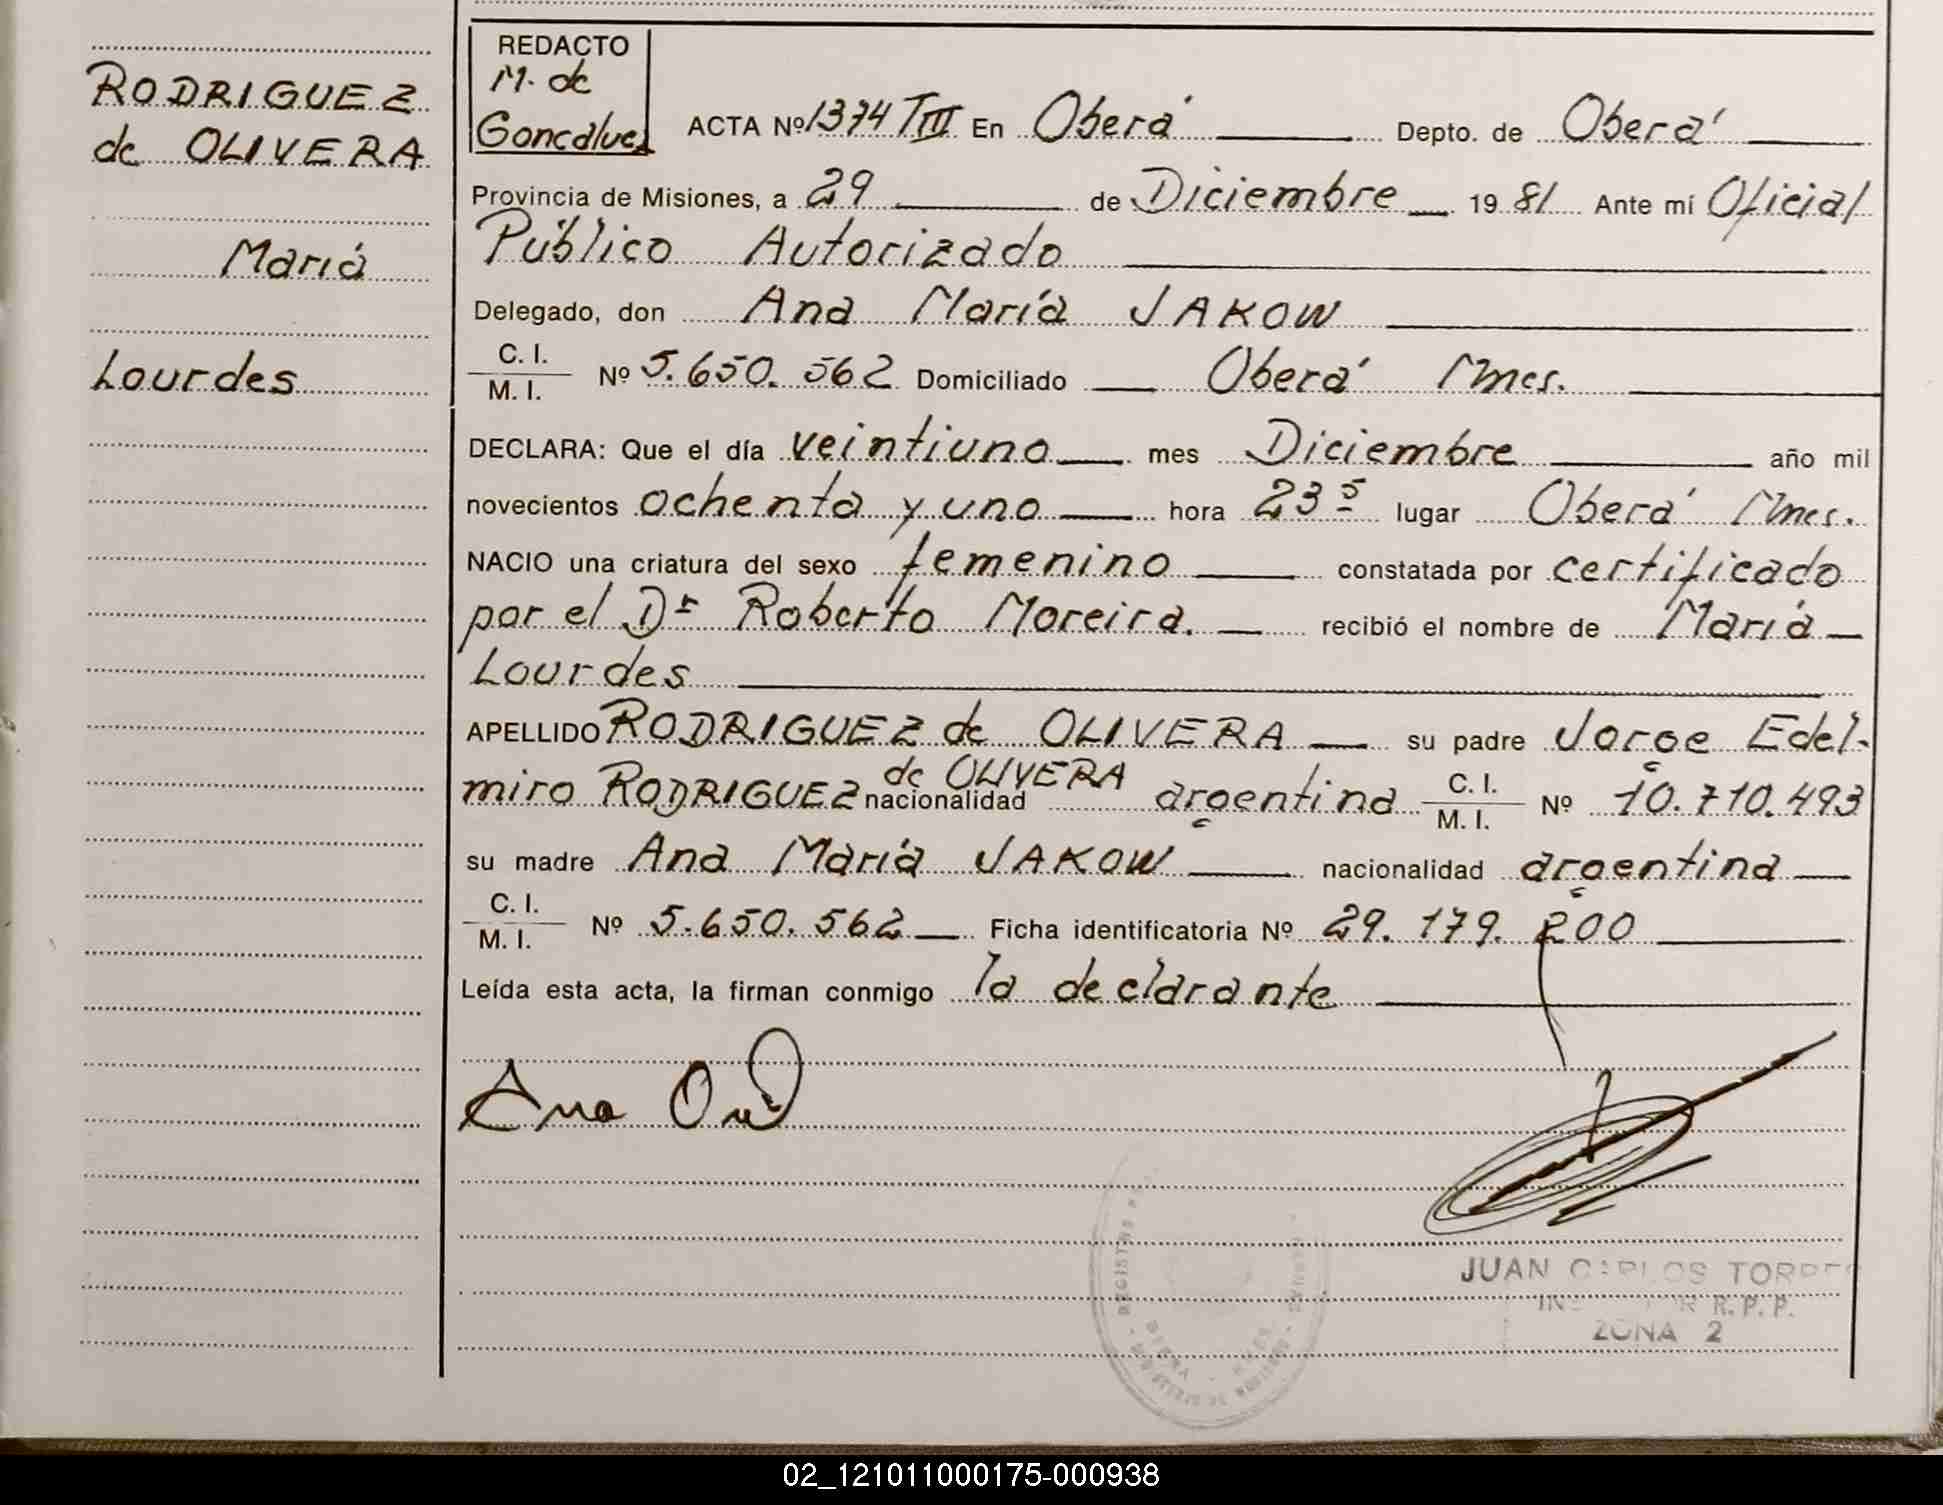 RODRIGUEZ
de OLIVERA
María
Lourdes
REDACTO
M. de
Goncalves
ACTA Nº 1374 TIII En Oberá Depto. de Oberá
Provincia de Misiones, a 29 de Diciembre 1981 Ante mí Oficial
Público Autorizado
Delegado, don Ana María JAKOW
C. I.
M. I. Nº 5.650.562 Domiciliado Oberá Mnes.
DECLARA: Que el día veintiuno mes Diciembre año mil
novecientos ochenta y uno hora 23 5 lugar Oberá Mnes.
NACIO una criatura del sexo femenino constatada por certificado
por el Dr Roberto Moreira. recibió el nombre de María
Lourdes
APELLIDO RODRIGUEZ de OLIVERA su padre Jorge Edel-
miro RODRIGUEZ de OLIVERA nacionalidad argentina C. I. M. I. Nº 10.710.493
su madre Ana María JAKOW nacionalidad argentina
C. I.
M. I. Nº 5.650.562 Ficha identificatoria Nº 29.179.200
Leída esta acta, la firman conmigo la declarante
Ana
JUAN CARLOS TORRES
R. P. P.
ZONA 2
02_121011000175-000938